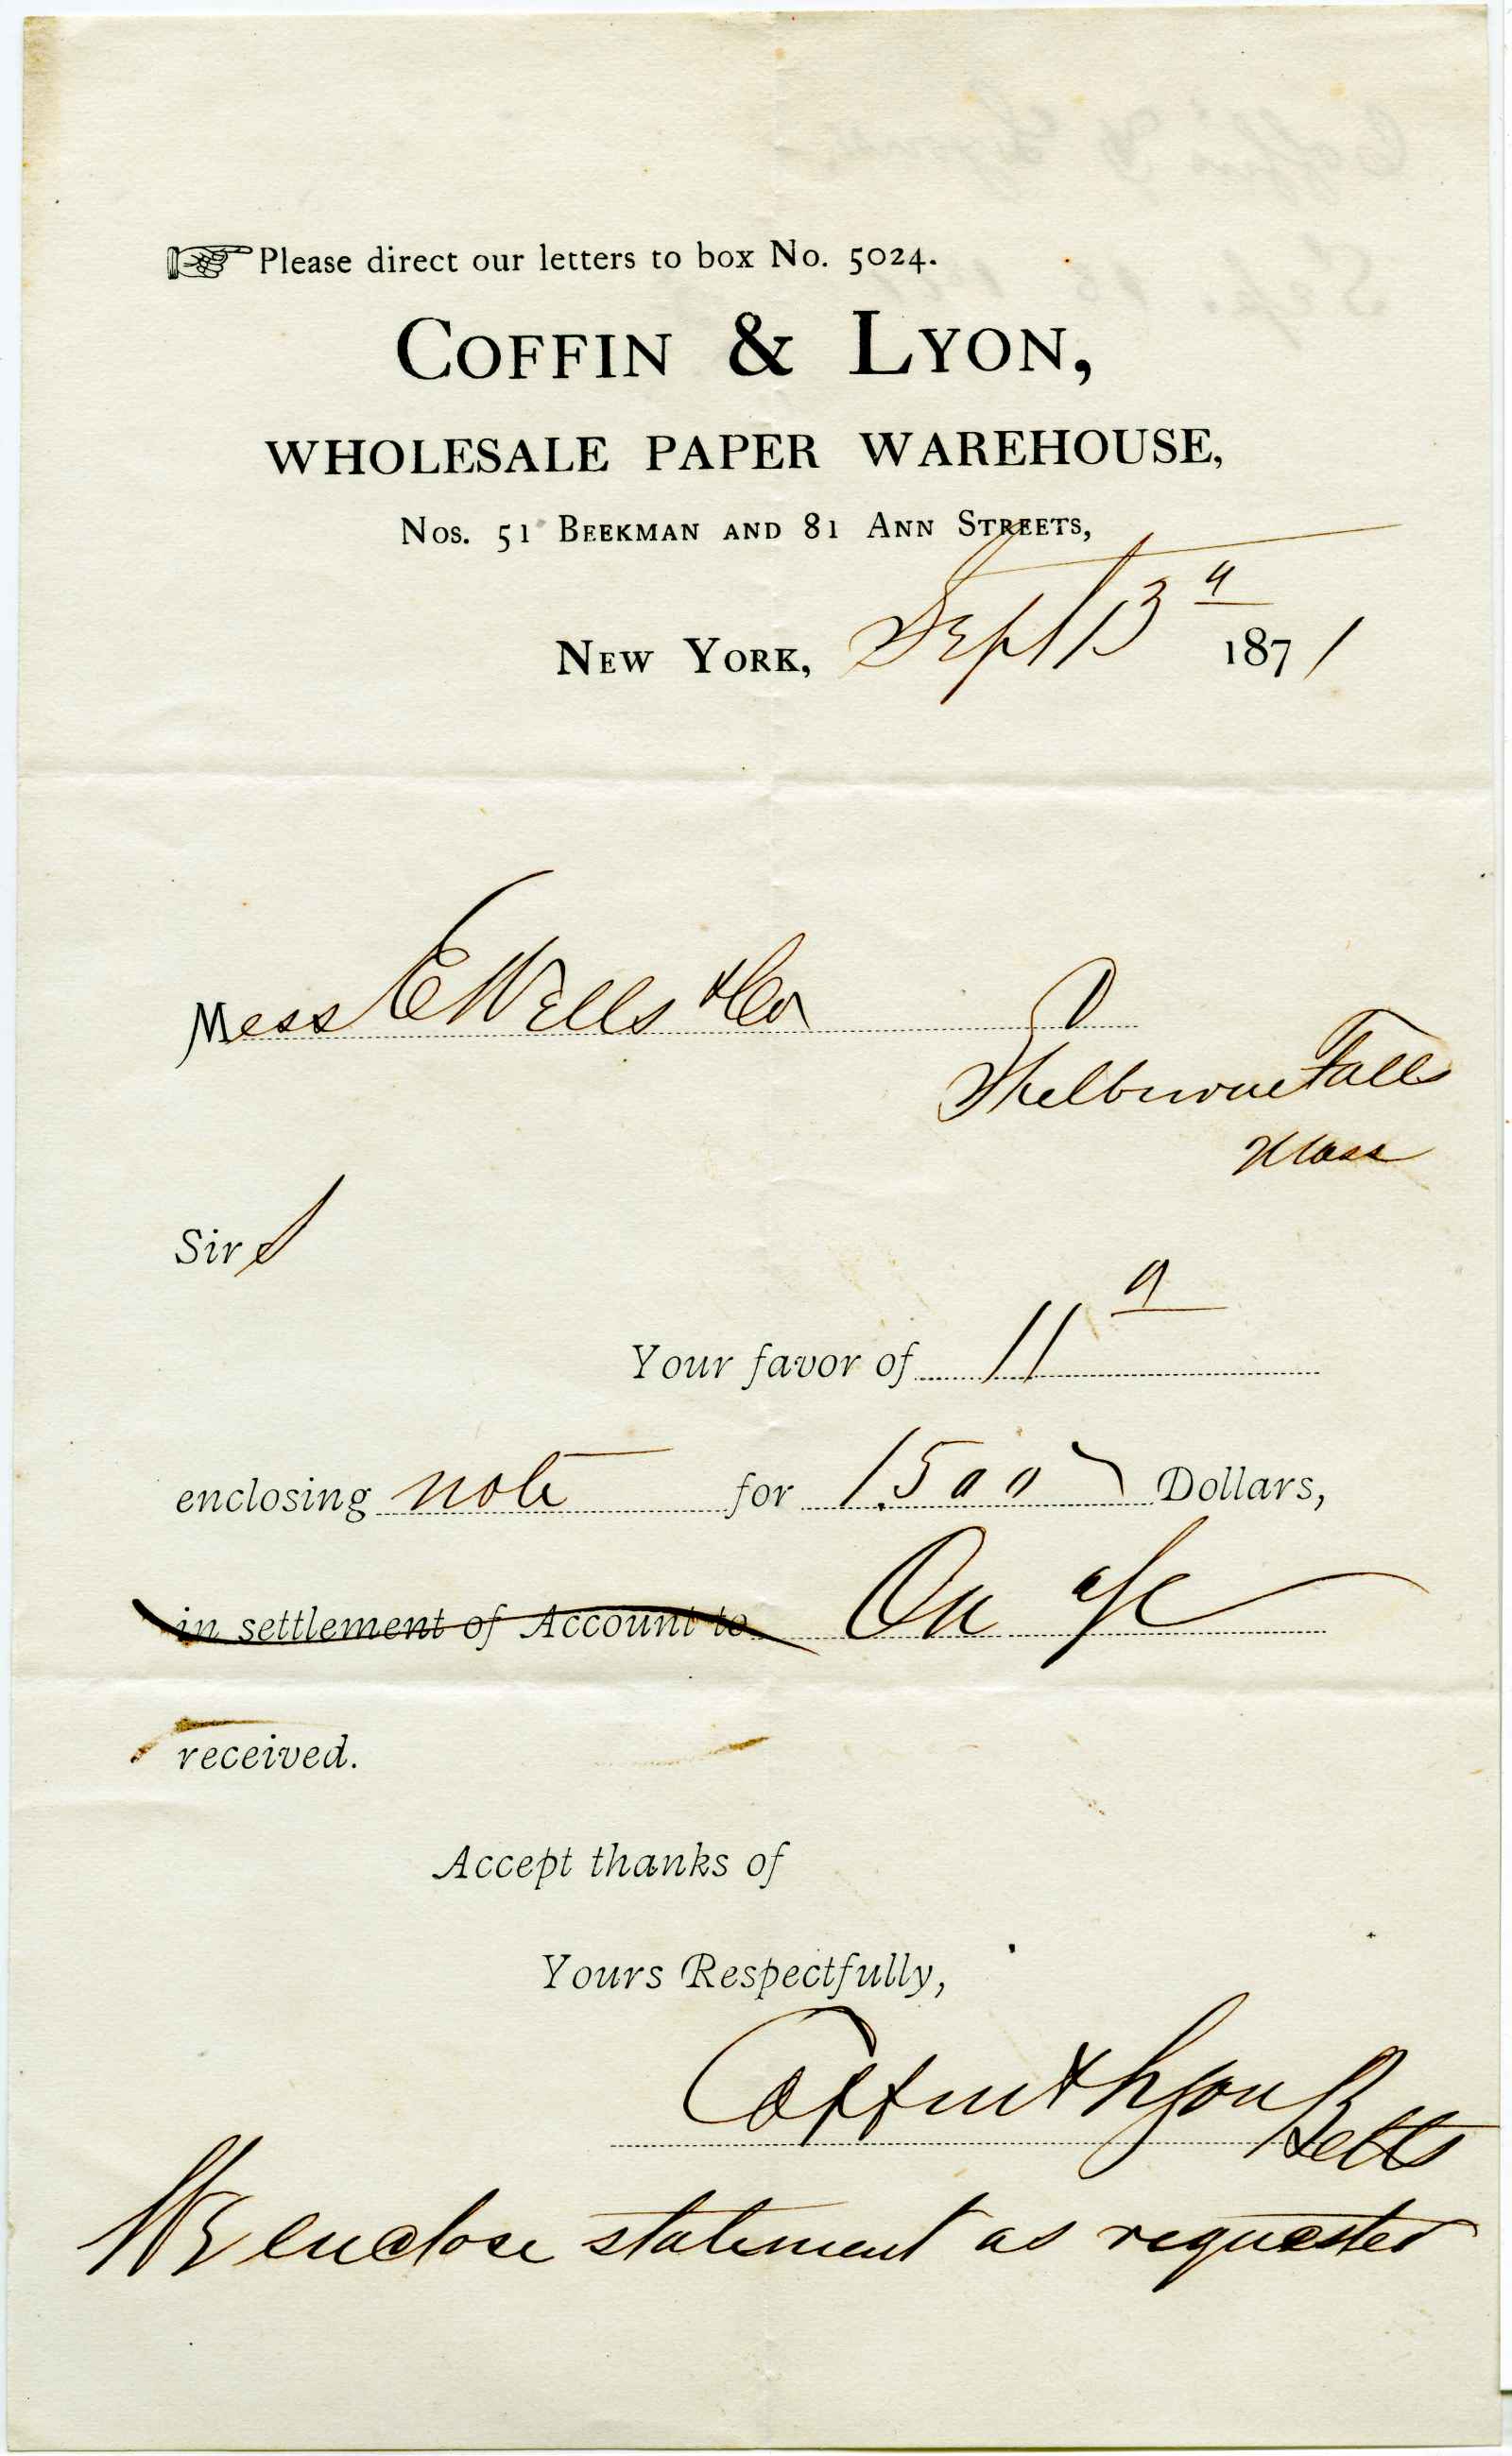 Please direct our letters to box No. 5024.
COFFIN & LYON,
WHOLESALE PAPER WAREHOUSE,
Nos. 51 BEEKMAN AND 81 ANN STREETS,
NEW YORK, Sept 13 1871
Mess E Wells & Co
Shelburne Falls
Mass
Sirs
Your favor of 11
enclosing note for 1500 Dollars,
in settlement of Account to On a/c
received.
Accept thanks of
Yours Respectfully,
Coffin & Lyon
Betts
We enclose statement as requested